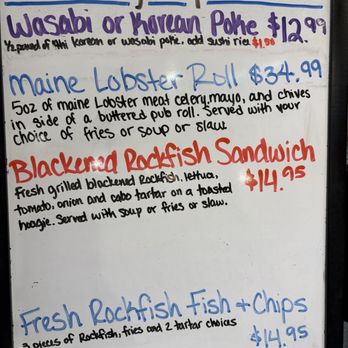 Wasabi or Korean Poke $12.99
1/2 pound of Ahi korean or wasabi poke. add sushi rice $1.50
Maine Lobster Roll $34.99
5oz of maine Lobster meat celery, mayo, and chives
in side of a buttered pub roll. Served with your
choice of fries or soup or slaw
Blackened Rockfish Sandwich
Fresh grilled blackened Rockfish, lettuce, $14.95
tomato, onion and cabo tartar on a toasted
hoagie. Served with soup or fries or slaw.
Fresh Rockfish Fish + Chips
3 pieces of Rockfish, fries and 2 tartar choices $14.95